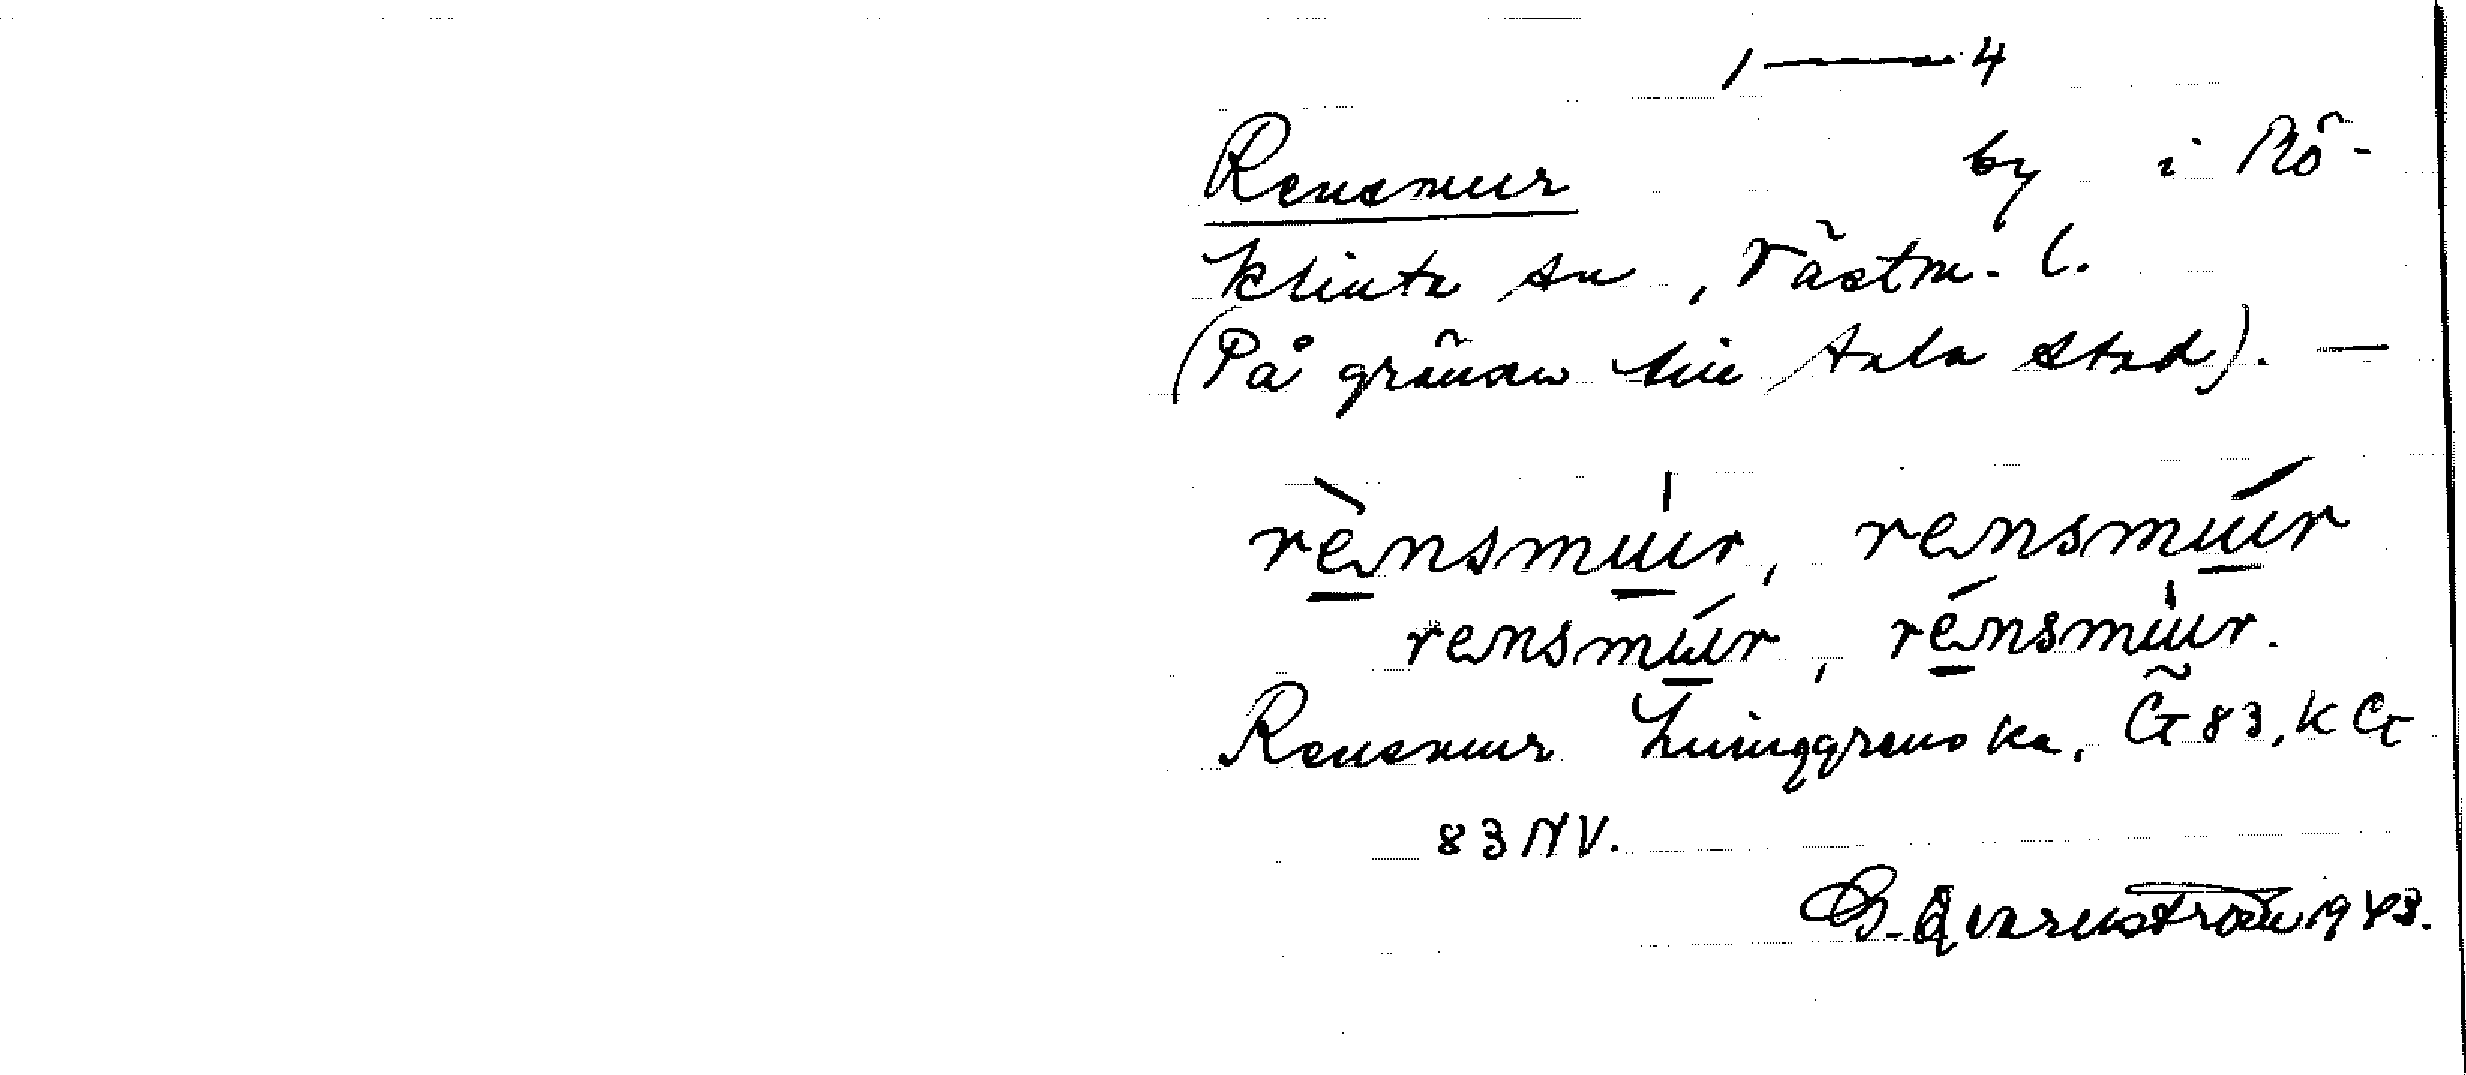 1 — 4
Rensmur by i Rö-
klinta sn, Västm. l.
(På gränsen till Sala stad). —
rènsmu̍ur, rensmúur
rensmúur, rénsmu̍ur.
Rensmur Gä 83, K Gt
83 NV.
G. Qvarnström 1943.